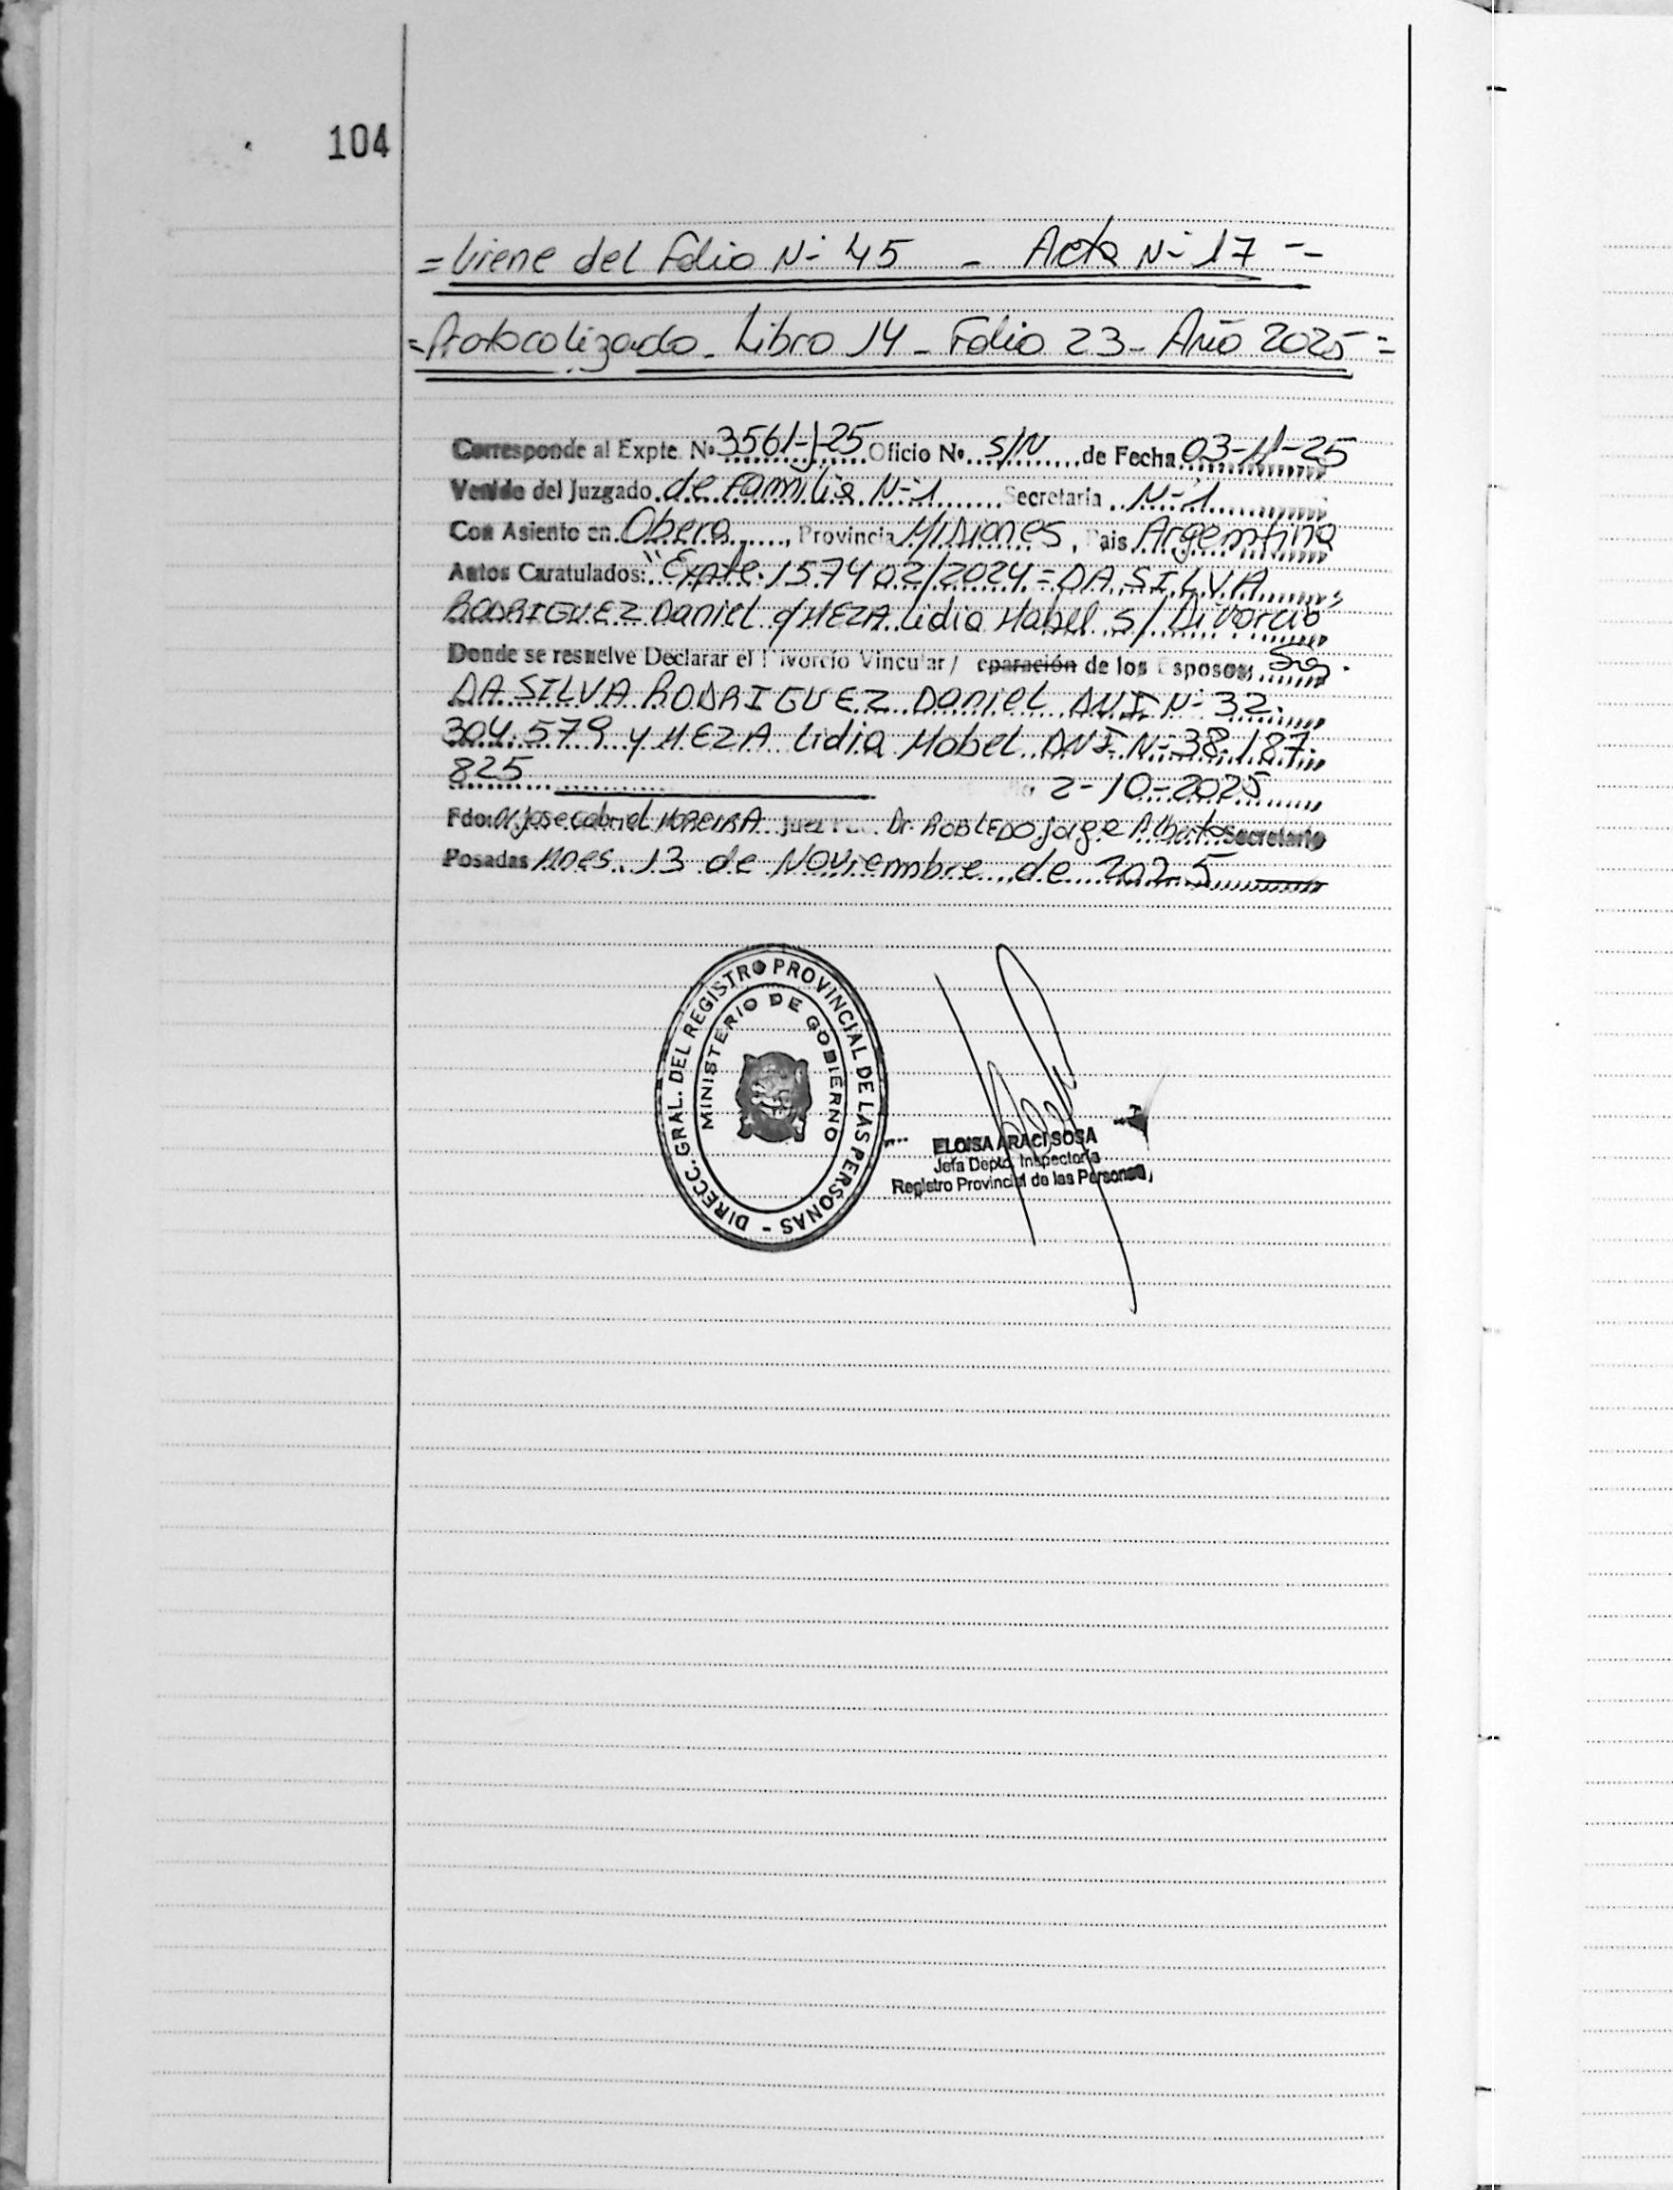 104
= Viene del Folio N- 45 - Acta N- 17 --
= Protocolizado - Libro 14 - Folio 23 - Año 2025 =
Corresponde al Expte. Nº 3561-J-25 Oficio Nº S/N de Fecha 03-11-25
Venido del Juzgado de Familia N-1 Secretaria N-1
Con Asiento en Obera, Provincia Misiones, Pais Argentina
Autos Caratulados: "Expte. 157402/2024 = DA SILVA
RODRIGUEZ Daniel c/ MEZA Lidia Mabel S/ Divorcio"
Donde se resuelve Declarar el Divorcio Vincular / eparación de los Esposos Sres.
DA SILVA RODRIGUEZ Daniel DNI N- 32.
304.579 y MEZA Lidia Mabel DNI N- 38.187.
825 2-10-2025
Fdo: Dr Jose Gabriel MOREIRA Juez Dr. ROBLEDO Jorge Alberto Secretario
Posadas Mnes. 13 de Noviembre de 2025
DIRECC. GRAL. DEL REGISTRO PROVINCIAL DE LAS PERSONAS -
MINISTERIO DE GOBIERNO
ELOISA ARACI SOSA
Jefa Depto. Inspectoría
Registro Provincial de las Personas